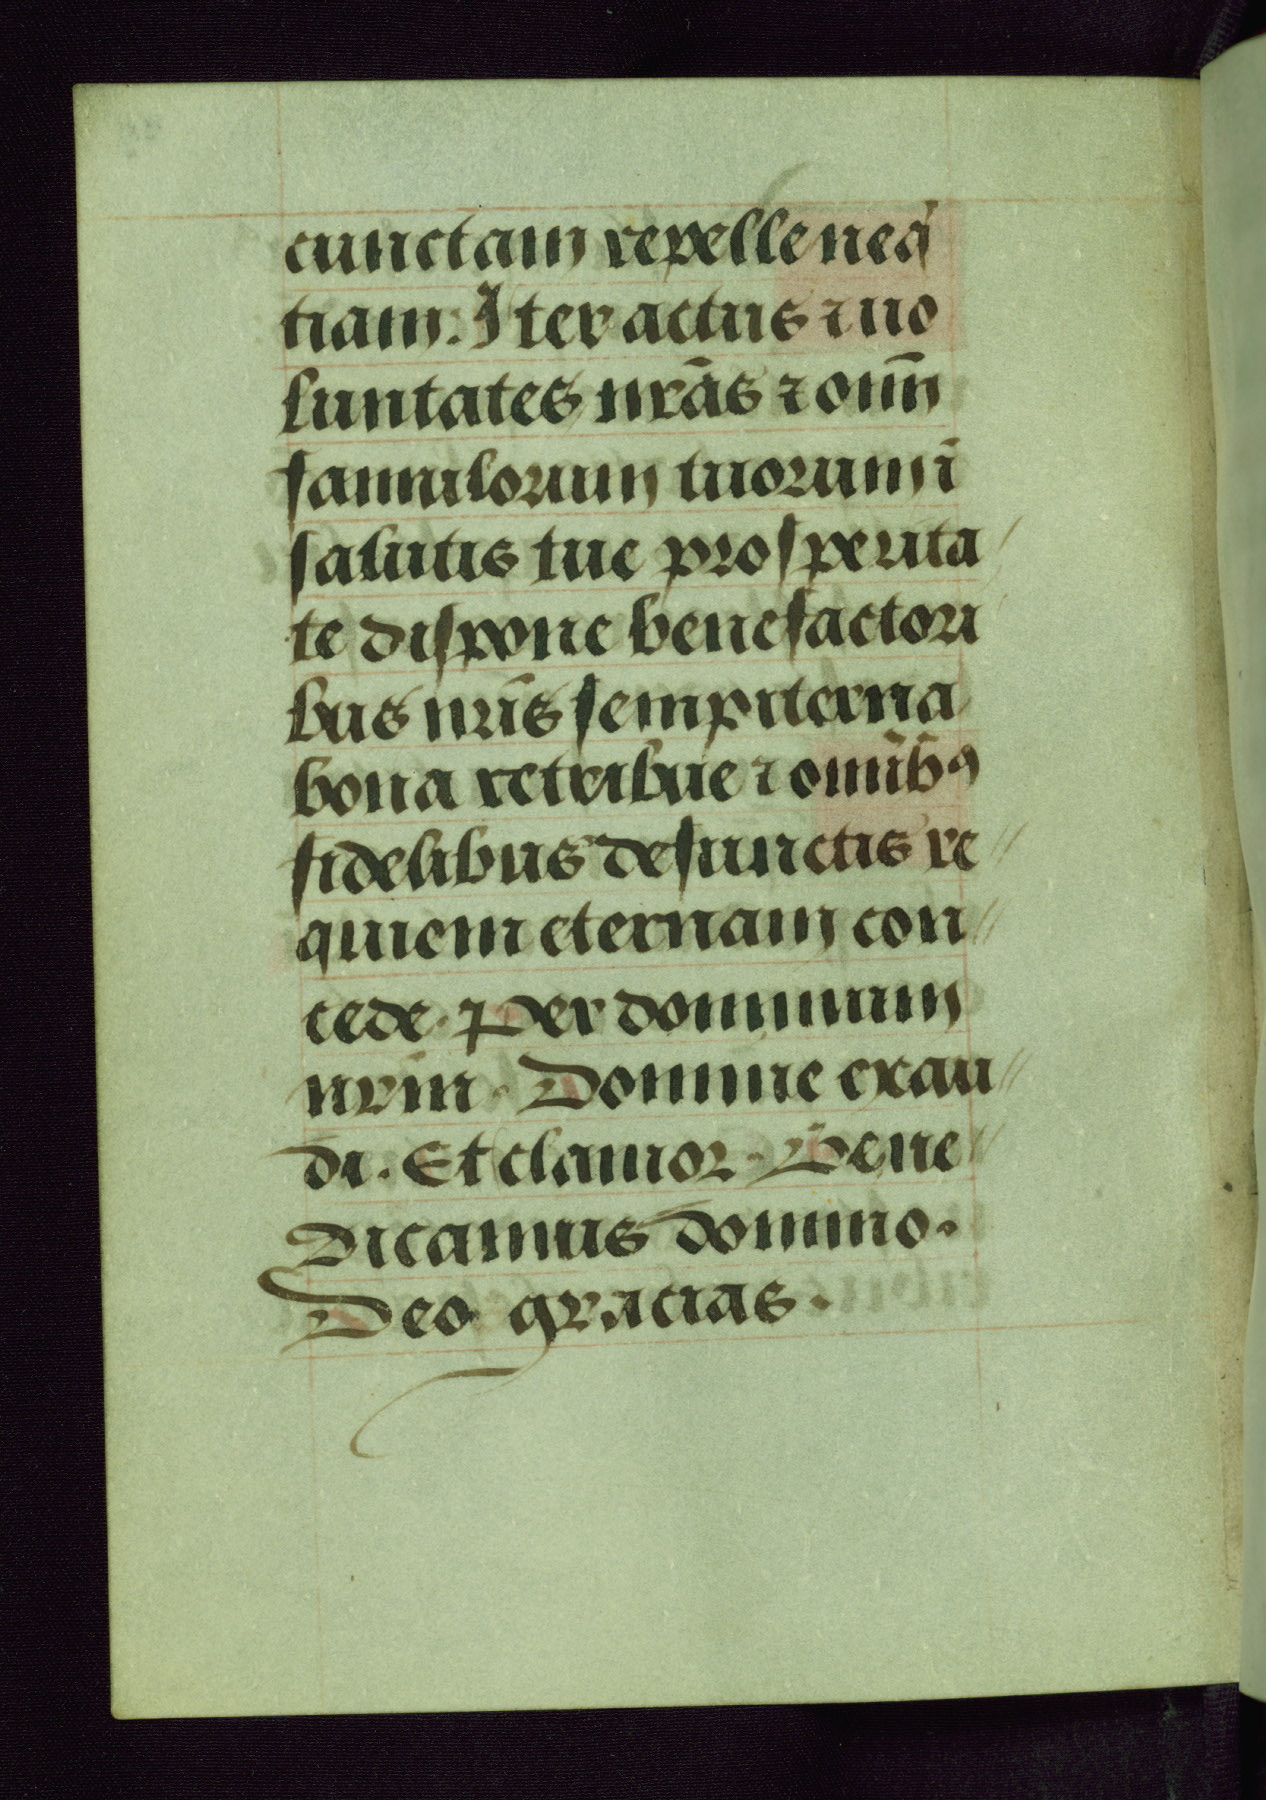 cunctam repelle neq̃
tiam. Iter actus ⁊ uo
luntates nr̃as ⁊ om̃
famulorum tuorum ĩ
salutis tue prosperita
te dispone benefactori
bus nr̃is sempiterna
bona retribue ⁊ om̃ib̃ꝰ
fidelibus defunctis re
quiem eternam con
cede. Per dominum
nr̃m. Domine exau
di. Et clamor. Bene
dicamus domino.
Deo gracias.